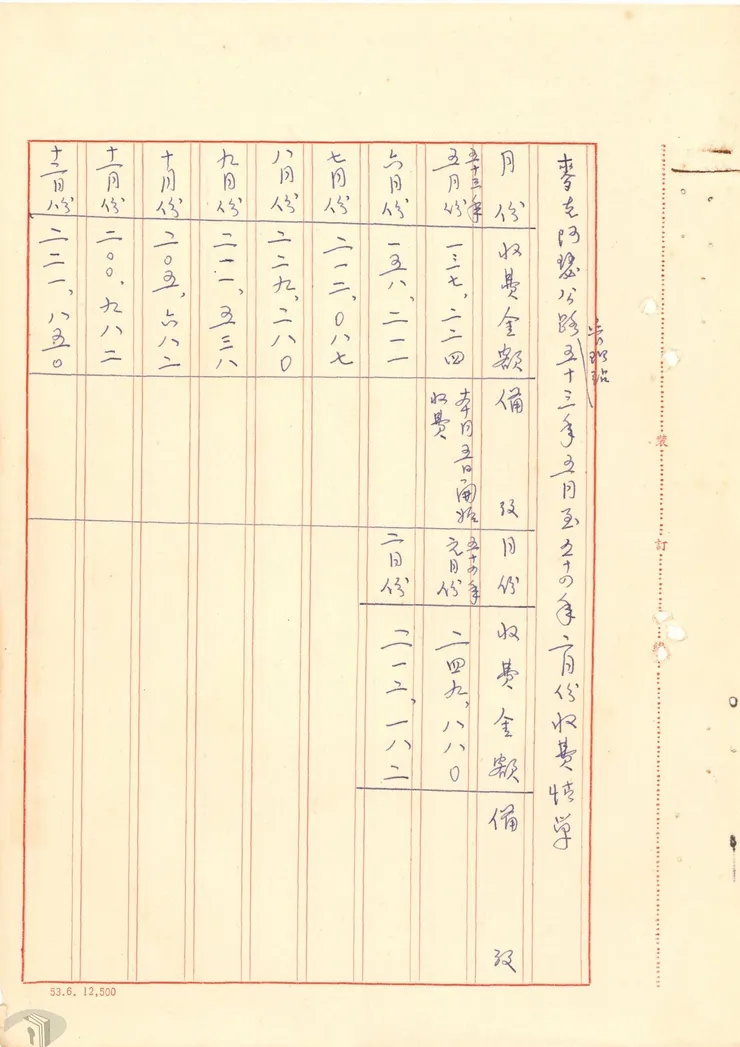 麥克阿瑟公路五十三年五月至五十四年二月份收費情單
月份 收費金額 備攷 月份 收費金額 備攷
五十三年
五月份 一三七,二二四 本月五日開始
收費
五十四年
元月份 二四九,八八〇
六月份 一五八,二一一
二月份 二一二,一八二
七月份 二一二,〇八七
八月份 二二九,二八〇
九月份 二一一,五三八
十月份 二〇五,六八二
十一月份 二〇〇,九八二
十二月份 二二一,八五〇
裝
訂
53.6. 12,500